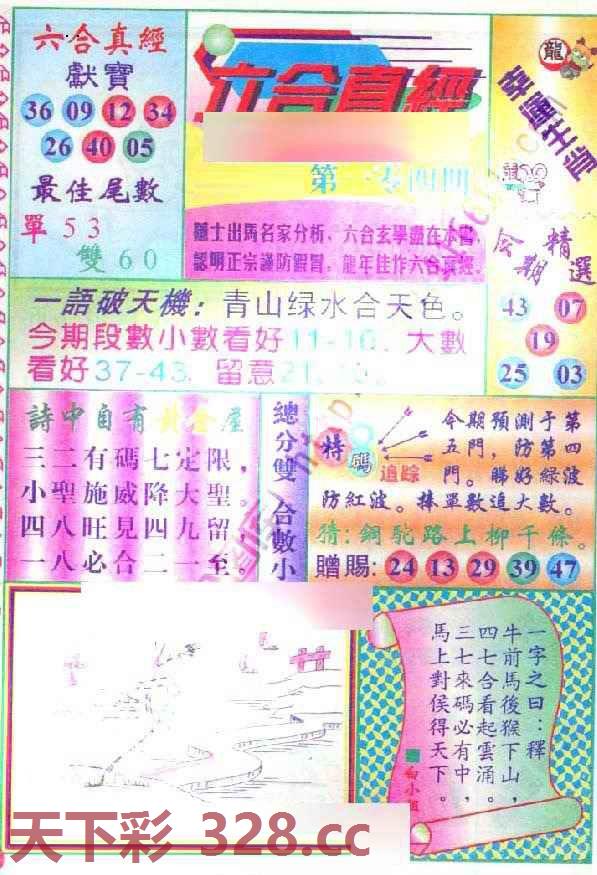 六合真經
獻寶
36 09 12 34
26 40 05
最佳尾數
單 5 3
雙 6 0
六合真經
第一零四期
龍
幸運生肖
精選
43 07
19
25 03
名家分析、六合玄學盡在本書,
認明正宗謹防假冒,龍年佳作六合真經。
一語破天機:青山绿水合天色。
今期段數小數看好11-16、大數
看好37-43,留意
詩中自有黃金屋
三二有碼七定限,
小聖施威降大聖。
四八旺見四九留,
一八必合二一至。
總分雙 合數小
特碼
追踪
今期預測于第
五門,防第四
門。睇好綠波
防紅波。捧單數追大數。
猜:銅駝路上柳千條。
贈賜:24 13 29 39 47
一字之曰:釋
牛前馬後猴下山,
四七合看起雲涌。
三七來碼必有中,
馬上對侯得天下。
天下彩 328.cc